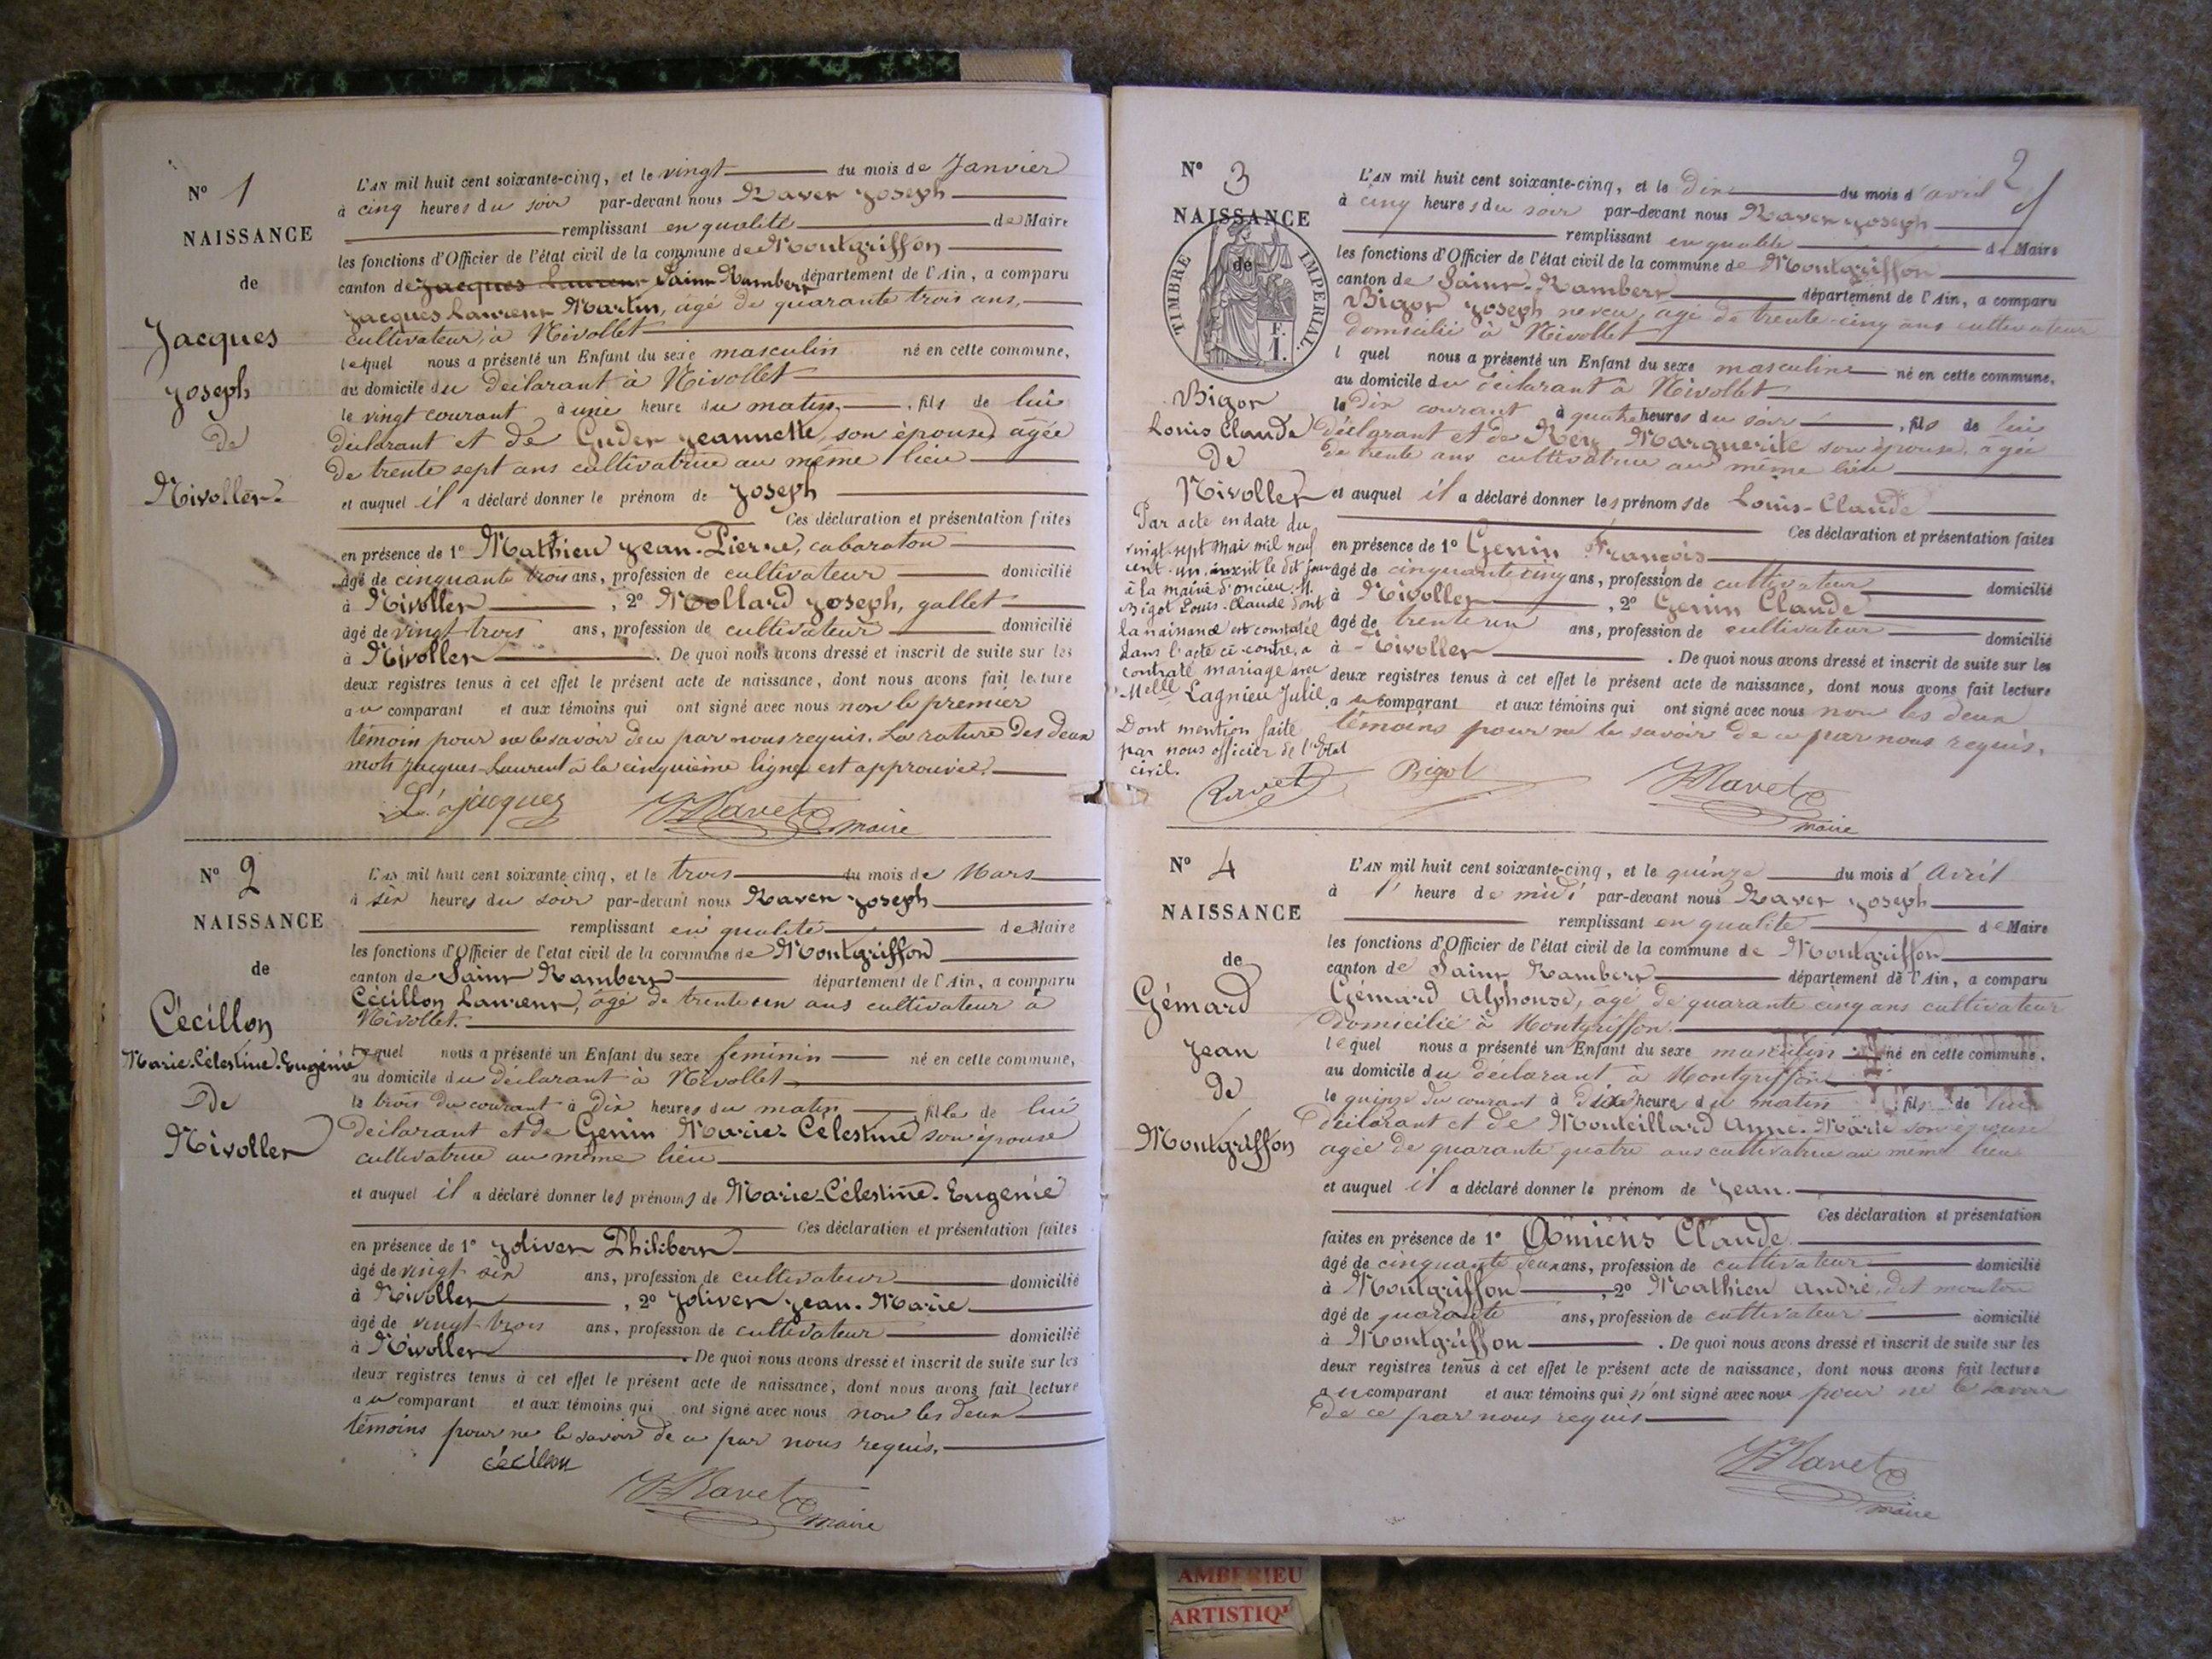 N° 1
NAISSANCE
de
Jacques
Joseph
de
Nivollet.
L'AN mil huit cent soixante-cinq, et le vingt du mois de Janvier
à cinq heures du soir par-devant nous Ravet Joseph
remplissant en qualité de Maire
les fonctions d'Officier de l'état civil de la commune de Montgriffon
canton de Jacques Laurent Saint Rambert département de l'Ain, a comparu
Jacques Laurent Martin, âgé de quarante trois ans,
cultivateur, à Nivollet
lequel nous a présenté un Enfant du sexe masculin né en cette commune,
au domicile du déclarant à Nivollet
le vingt courant à une heure du matin, fils de lui
déclarant et de Gudet Jeannette, son épouse, agée
de trente sept ans cultivatrice au même lieu
et auquel il a déclaré donner le prénom de Joseph
Ces déclaration et présentation faites
en présence de 1° Mathieu Jean-Pierre, cabaraton
âgé de cinquante trois ans, profession de cultivateur domicilié
à Nivollet, 2° Mollard Joseph, gallet
âgé de vingt trois ans, profession de cultivateur domicilié
à Nivollet. De quoi nous avons dressé et inscrit de suite sur les
deux registres tenus à cet effet le présent acte de naissance, dont nous avons fait lecture
au comparant et aux témoins qui ont signé avec nous non le premier
témoin pour ne le savoir de ce par nous requis. La rature des deux
mots Jacques Laurent à la cinquième ligne est approuvée.
L. Jacques Ravet maire
N° 2
NAISSANCE
de
Cécillon
Marie-Célestine-Eugénie
de
Nivollet
L'AN mil huit cent soixante-cinq, et le trois du mois de Mars
à six heures du soir par-devant nous Ravet Joseph
remplissant en qualité de Maire
les fonctions d'Officier de l'état civil de la commune de Montgriffon
canton de Saint Rambert département de l'Ain, a comparu
Cécillon Laurent, âgé de trente un ans cultivateur à
Nivollet.
lequel nous a présenté un Enfant du sexe féminin né en cette commune,
au domicile du déclarant à Nivollet
le trois du courant à dix heures du matin fille de lui
déclarant et de Genin Marie-Célestine son épouse
cultivatrice au même lieu
et auquel il a déclaré donner les prénoms de Marie-Célestine-Eugénie
Ces déclaration et présentation faites
en présence de 1° Jolivet Philibert
âgé de vingt six ans, profession de cultivateur domicilié
à Nivollet, 2° Jolivet Jean-Marie
âgé de vingt trois ans, profession de cultivateur domicilié
à Nivollet. De quoi nous avons dressé et inscrit de suite sur les
deux registres tenus à cet effet le présent acte de naissance, dont nous avons fait lecture
au comparant et aux témoins qui ont signé avec nous non les deux
témoins pour ne le savoir de ce par nous requis.
cécillon
Ravet maire
2
N° 3
NAISSANCE
de
TIMBRE IMPERIAL.
F. 1.
Bigot
Louis Claude
de
Nivollet
Par acte en date du
vingt-sept Mai mil neuf
cent-un, inscrit le dit jour
à la mairie d'oncieu. M.
Bigot Louis-Claude dont
la naissance est constatée
dans l'acte ci-contre, a
contracté mariage avec
Melle Lagnieu Julie.
Dont mention faite
par nous officier de l'Etat
civil.
Ravet
L'AN mil huit cent soixante-cinq, et le dix du mois d'avril
à cinq heures du soir par-devant nous Ravet Joseph
remplissant en qualité de Maire
les fonctions d'Officier de l'état civil de la commune de Montgriffon
canton de Saint-Rambert département de l'Ain, a comparu
Bigot Joseph neveu, âgé de trente-cinq ans cultivateur
domicilié à Nivollet
l quel nous a présenté un Enfant du sexe masculin né en cette commune,
au domicile du déclarant à Nivollet
le dix courant à quatre heures du soir, fils de lui
déclarant et de Rey Marguerite son épouse, âgée
de trente ans cultivatrice au même lieu
et auquel il a déclaré donner les prénoms de Louis-Claude
Ces déclaration et présentation faites
en présence de 1° Genin François
âgé de cinquante cinq ans, profession de cultivateur domicilié
à Nivollet, 2° Genin Claude
âgé de trente un ans, profession de cultivateur domicilié
à Nivollet. De quoi nous avons dressé et inscrit de suite sur les
deux registres tenus à cet effet le présent acte de naissance, dont nous avons fait lecture
au comparant et aux témoins qui ont signé avec nous non les deux
témoins pour ne le savoir de ce par nous requis.
Bigot Ravet
maire
N° 4
NAISSANCE
de
Gémard
Jean
de
Montgriffon
L'AN mil huit cent soixante-cinq, et le quinze du mois d'Avril
à l' heure de midi par-devant nous Ravet Joseph
remplissant en qualité de Maire
les fonctions d'Officier de l'état civil de la commune de Montgriffon
canton de Saint Rambert département de l'Ain, a comparu
Gémard Alphonse, âgé de quarante cinq ans cultivateur
domicilié à Montgriffon.
lequel nous a présenté un Enfant du sexe masculin né en cette commune,
au domicile du déclarant à Montgriffon
le quinze du courant à dix heure du matin, fils de lui
déclarant et de Monteillard Anne-Marie son épouse
agée de quarante quatre ans cultivatrice au même lieu
et auquel il a déclaré donner le prénom de Jean.
Ces déclaration et présentation
faites en présence de 1° Amiens Claude
âgé de cinquante deux ans, profession de cultivateur domicilié
à Montgriffon, 2° Mathieu André, dit mouton
âgé de quarante ans, profession de cultivateur domicilié
à Montgriffon. De quoi nous avons dressé et inscrit de suite sur les
deux registres tenus à cet effet le présent acte de naissance, dont nous avons fait lecture
au comparant et aux témoins qui n'ont signé avec nous pour ne le savoir
de ce par nous requis
Ravet
maire
AMBERIEU
ARTISTIQ